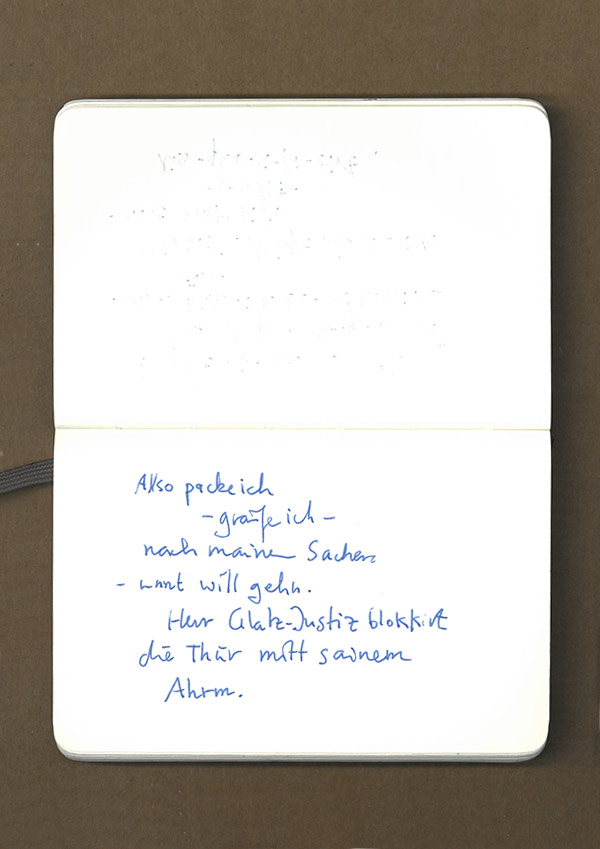 Allso packe ich
- graife ich -
nach mainen Sachen
- unnt will gehn.
Herr Glatz-Justiz blokkirt
die Thür mitt sainem
Ahrm.